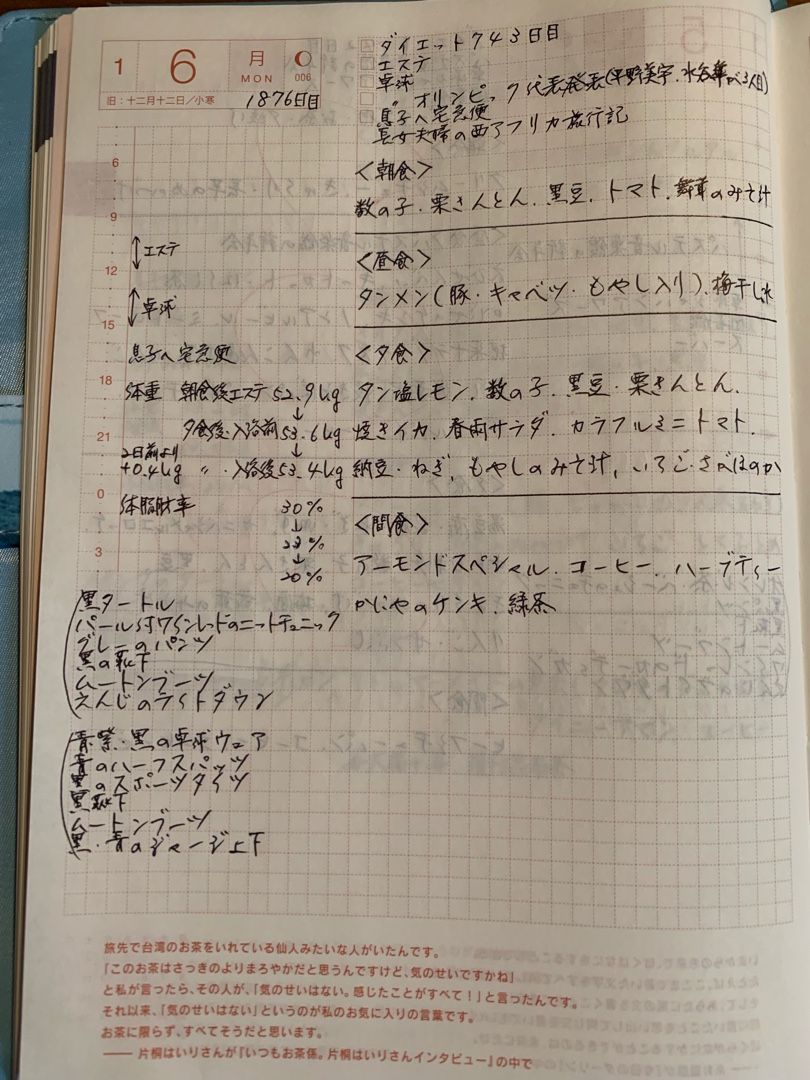 1 6 月 MON 006
旧：十二月十二日／小寒
1876日目
ダイエット743日目
エステ
卓球
〃 オリンピック代表発表(平野美宇、水谷隼ら3人目)
息子へ宅急便
長女夫婦の西アフリカ旅行記
〈朝食〉
数の子．栗きんとん．黒豆．トマト．舞茸のみそ汁
〈昼食〉
タンメン(豚・キャベツ・もやし入り)．梅干し水
〈夕食〉
タン塩レモン．数の子．黒豆．栗きんとん．
焼きイカ．春雨サラダ．カラフルミニトマト．
納豆・ねぎ．もやしのみそ汁．いちご・さがほのか
〈間食〉
アーモンドスペシャル．コーヒー．ハーブティー
かにやのケンキ．緑茶
6
9
エステ
12
卓球
15
息子へ宅急便
18
体重 朝食後エステ52.9kg
↓
21
夕食後・入浴前53.6kg
↓
2日前より
+0.4kg 〃 ・入浴後53.4kg
0
体脂肪率 30%
↓
23%
↓
20%
3
黒タートル
パール付ワインレッドのニットチュニック
グレーのパンツ
黒の靴下
ムートンブーツ
えんじのライトダウン
青・紫・黒の卓球ウェア
青のハーフスパッツ
黒のスポーツタイツ
黒靴下
ムートンブーツ
黒・青のジャージ上下
旅先で台湾のお茶をいれている仙人みたいな人がいたんです。
「このお茶はさっきのよりまろやかだと思うんですけど、気のせいですかね」
と私が言ったら、その人が、「気のせいはない。感じたことがすべて！」と言ったんです。
それ以来、「気のせいはない」というのが私のお気に入りの言葉です。
お茶に限らず、すべてそうだと思います。
―― 片桐はいりさんが『いつもお茶係。片桐はいりさんインタビュー』の中で